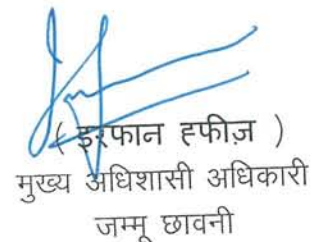 ( इरफान हफीज़ )
मुख्य अधिशासी अधिकारी
जम्मू छावनी